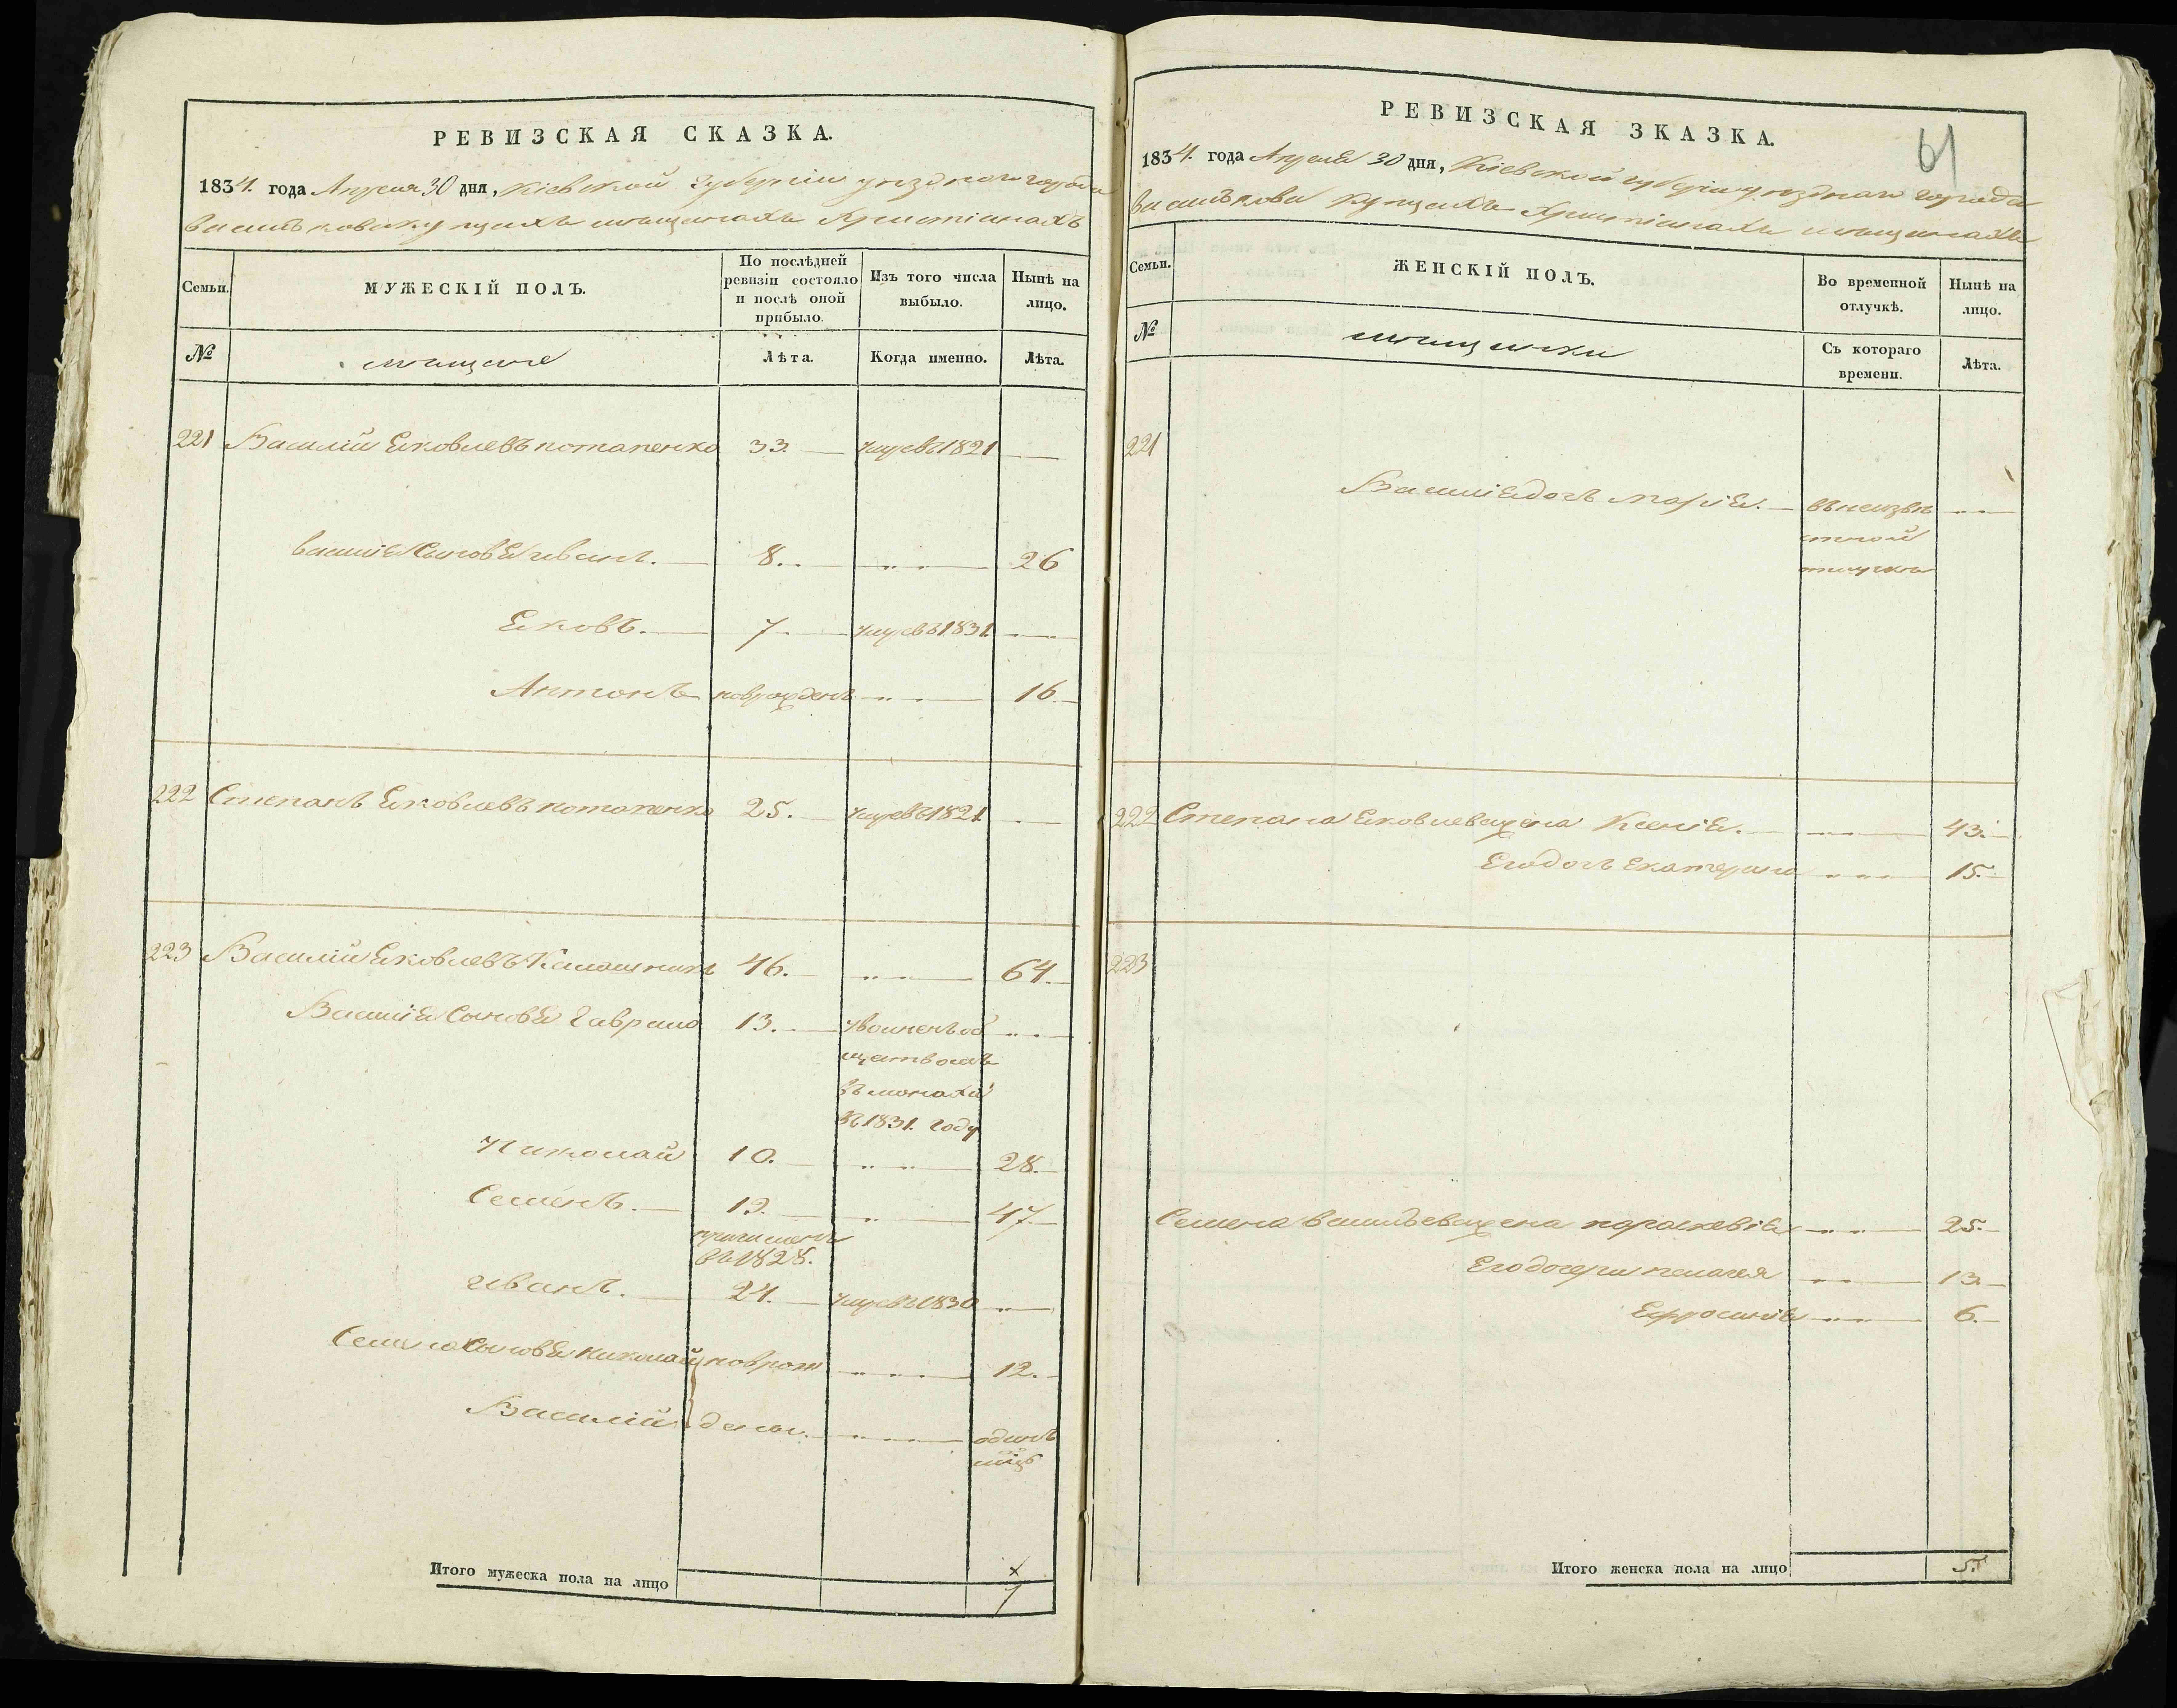 РЕВИЗСКАЯ СКАЗКА.
1834. года Апреля 30 дня, Кіевской губерніи уезднаго города
василъкова купцахъ мещанахъ Христіанахъ
Семьи.
МУЖЕСКІЙ ПОЛЪ.
По послѣдней ревизіи состояло и послѣ оной прибыло.
Изъ того числа выбыло.
Нынѣ на лицо.
№
мещане
Лѣта.
Когда именно.
Лѣта.
221 Василій Яковлевъ потапенко 33. умревъ1821
василія Сыновя иванъ. 8. 26
Яковъ. 7 умревъ1831.
Антонъ новрожденъ 16.
222 Степанъ Яковлевъ потапенко 25. умревъ1821
223 Василій Яковлевъ 46. 64.
Василія Сыновя Гаврило 13. уволненъ об
ществомъ
въ монахи
въ 1831. году
Николай 10. 28.
Семенъ. 19. 47.
причисленъ
въ 1828.
иванъ. 24. умревъ1830
Семена Сыновя николай новрож 12.
Василій дены. одинъ
мѣсц
Итого мужеска пола на лицо 7
РЕВИЗСКАЯ ЗКАЗКА.
61
1834. года Апреля 30 дня, Кіевской губеріи уезднаго города
василъкова купцахъ Христіанахъ мещанахъ
Семьи.
ЖЕНСКІЙ ПОЛЪ.
Во временной отлучкѣ.
Нынѣ на лицо.
№
мещанки
Съ котораго времени.
Лѣта.
221
Василія дочъ марія. въ неизвѣ
стной
отлучке
222 Степана Яковлева жена Ксенія. 43.
Его дочъ Екатерина 15.
223
Семена василъева жена параскевія 25.
Его дочери пелагея 13.
Ефросинія 6.
Итого женска пола на лицо 5.